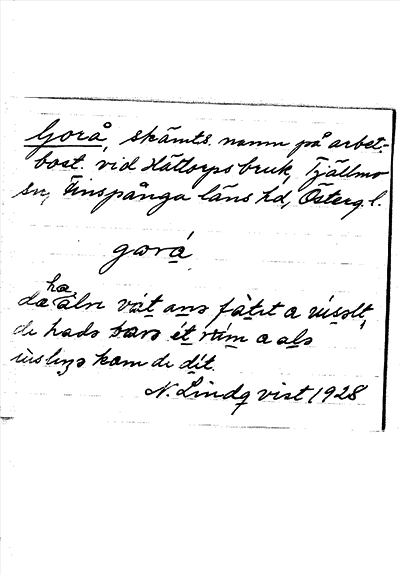 Gorå, skämts. namn på arbet.-
bost. vid Hättorps bruk, Tjällmo
sn, Finspånga läns hd, Österg. l.
gorå
ha
de alri vat ana fatit a uisalt,
de hade bara et rum a als
uislina kom de dit.
N. Lindqvist 1928